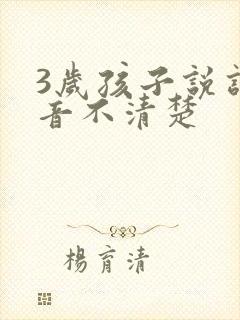 3歲孩子說
音不清楚
楊育清